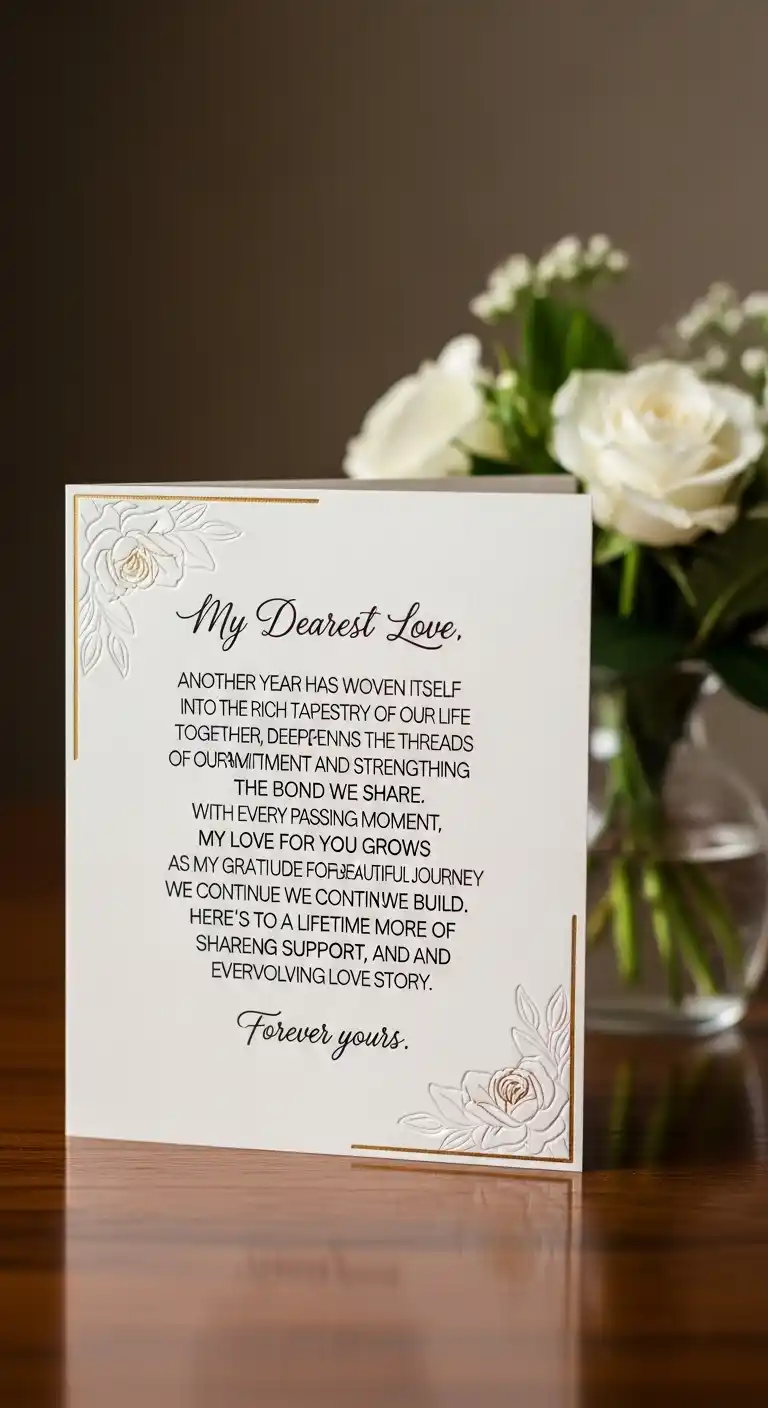 My Dearest Love,
ANOTHER YEAR HAS WOVEN ITSELF
INTO THE RICH TAPESTRY OF OUR LIFE
TOGETHER, THE THREADS
OF AND STRENGTHING
THE BOND WE SHARE.
WITH EVERY PASSING MOMENT,
MY LOVE FOR YOU GROWS
AS MY GRATIUDE JOURNEY
WE CONTINUE WE BUILD.
HERE'S TO A LIFETIME MORE OF
SHARENG SUPPORT, AND AND
EVERVOLVING LOVE STORY.
Forever yours.